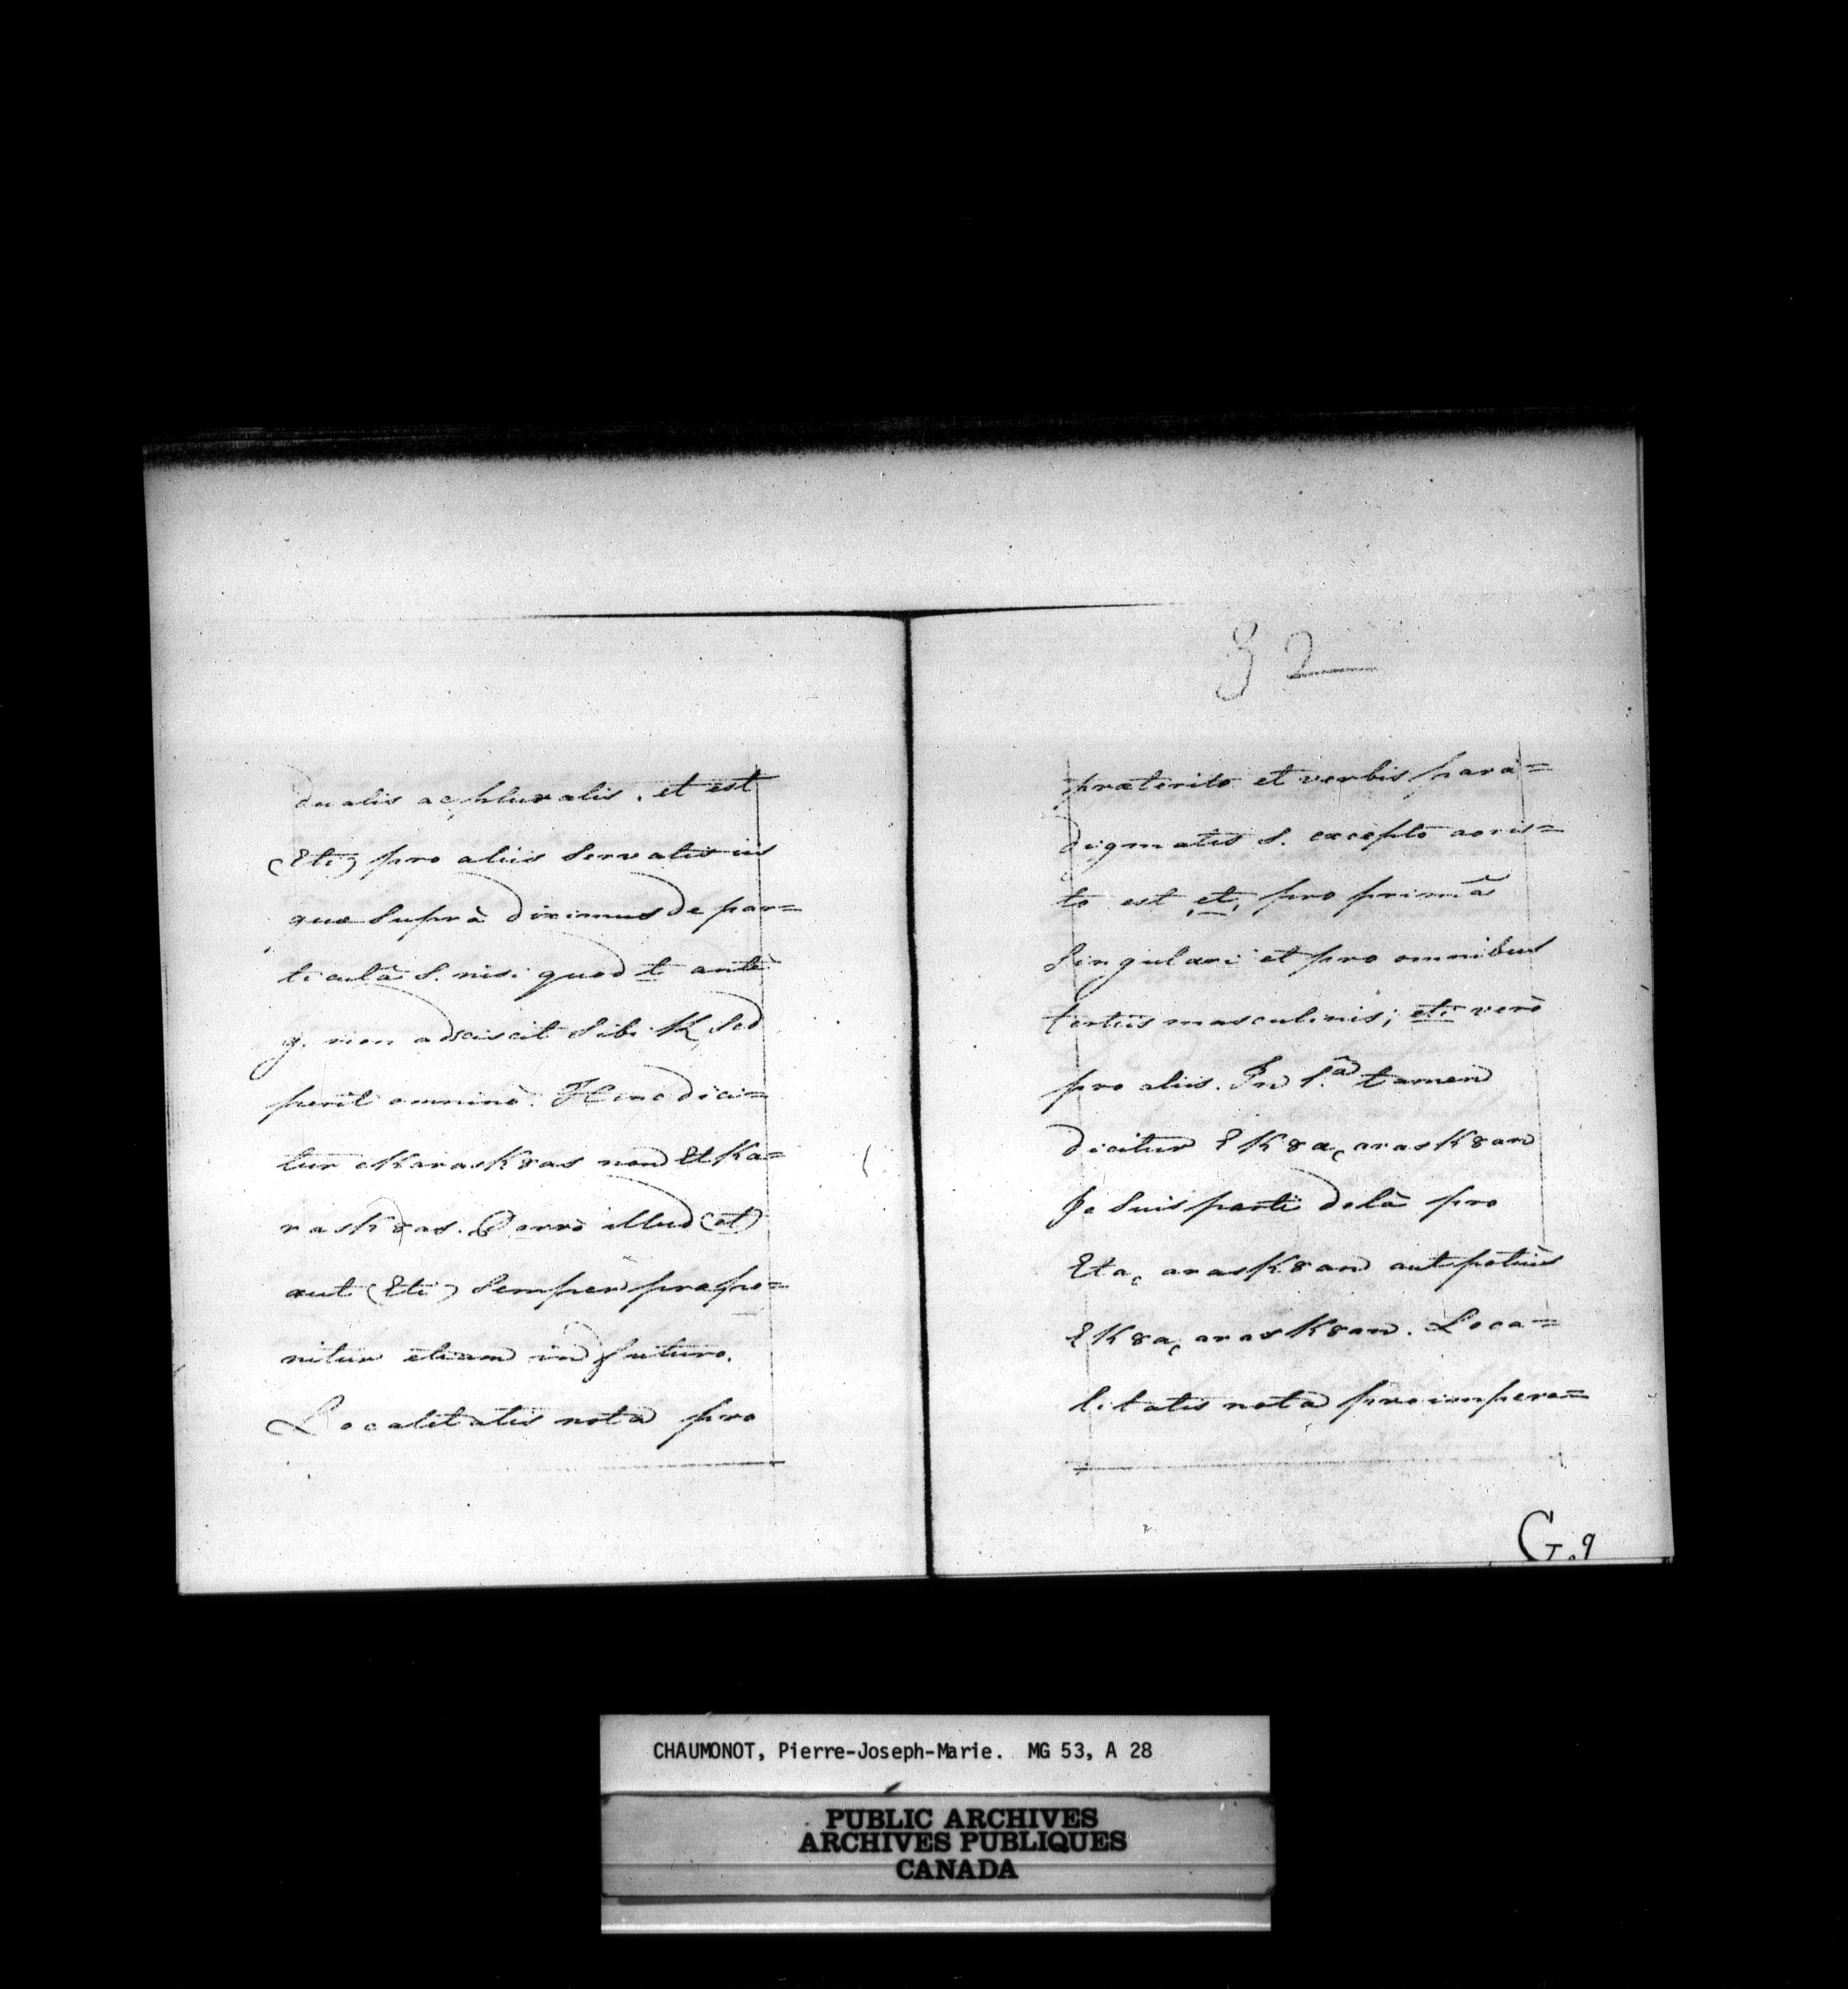 dualis ac pluralis. et est
(Eti) pro aliis servatis iis
quæ suprà diximus de par=
ticulâ S. nisi quod t antè
g. non adsciscit sibi K, sed
perit omninò. Hinc dici=
tur ekaraskȣas non Etka=
raskȣas. Porrò illud (et)
aut (Eti) semper præpo=
nitur etiam in futuro.
Localitatis nota pro
32
præterito et verbis para=
digmatis S. excepto aoris=
to est et, pro primâ
singulari et pro omnibus
tertiis masculinis; eti verò
pro aliis. In 1.â tamen
dicitur Ekȣa, araskȣan
Je suis parti delà pro
Eta, araskȣan aut potiùs
Ekȣa, araskȣan. Loca=
litatis nota pro impera=
G.9
CHAUMONOT, Pierre-Joseph-Marie. MG 53, A 28
PUBLIC ARCHIVES
ARCHIVES PUBLIQUES
CANADA